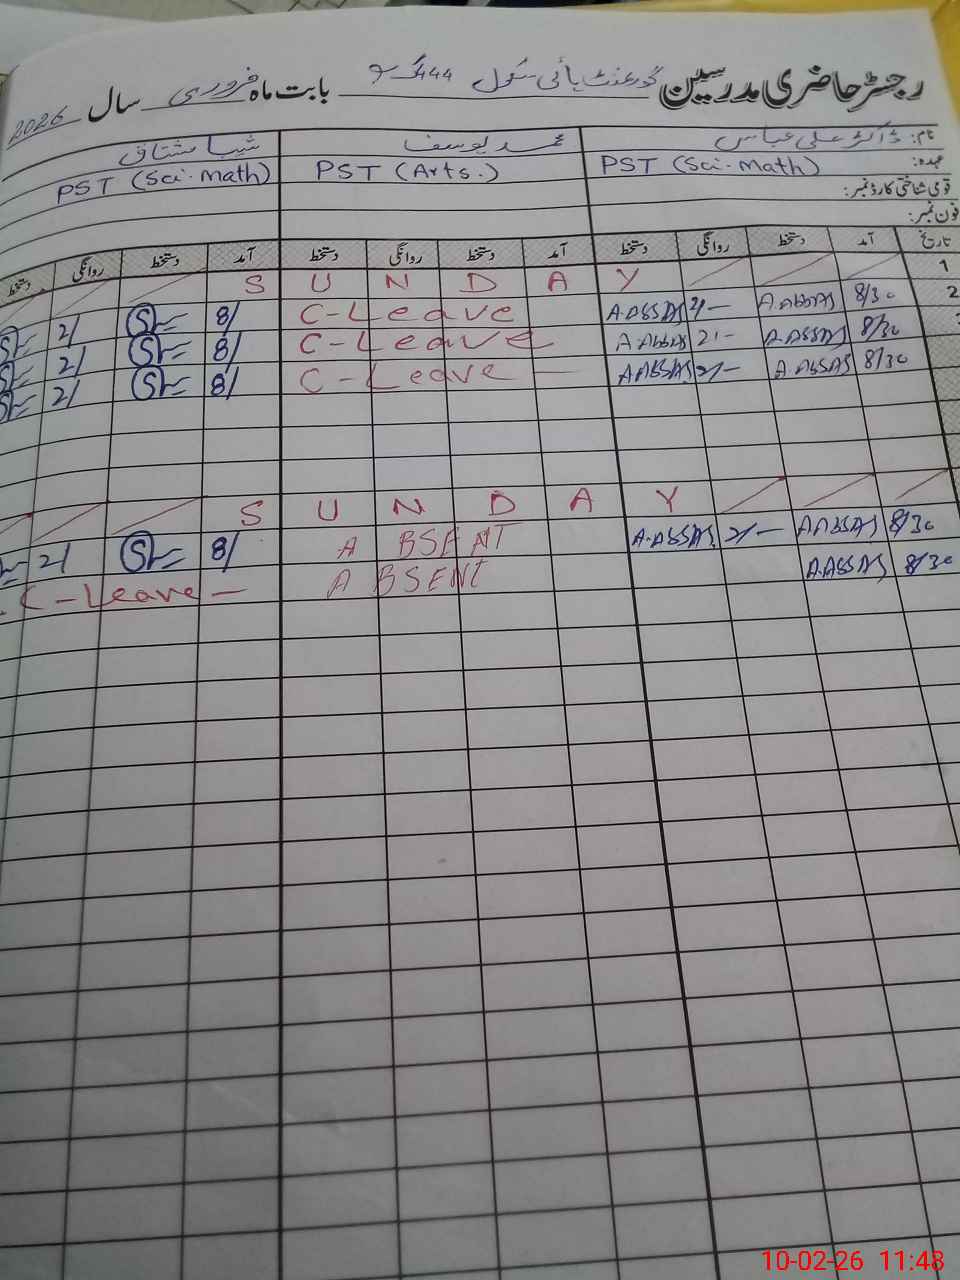 رجسٹر حاضری مدرسین گورنمنٹ ہائی سکول 444 گ ب بابت ماہ فروری سال 2026
نام: ڈاکٹر علی عباس محمد یوسف شیبا مشتاق
عہدہ: PST (Sci. Math) PST (Arts.) PST (Sci. Math)
قومی شناختی کارڈ نمبر:
فون نمبر:
تاریخ آمد دستخط روانگی دستخط آمد دستخط روانگی دستخط آمد دستخط روانگی دستخط
1 S U N D A Y
2 8/30 A.ABBAS 2/- A.ABBAS C-Leave 8/ 2/
8/30 A.ABBAS 2/- A.ABBAS C-Leave 8/ 2/
8/30 A.ABBAS 2/- A.ABBAS C-Leave 8/ 2/
S U N D A Y
8/30 A.ABBAS 2/- A.ABBAS ABSENT 8/ 2/
8/30 A.ABBAS ABSENT C-Leave
10-02-26 11:48